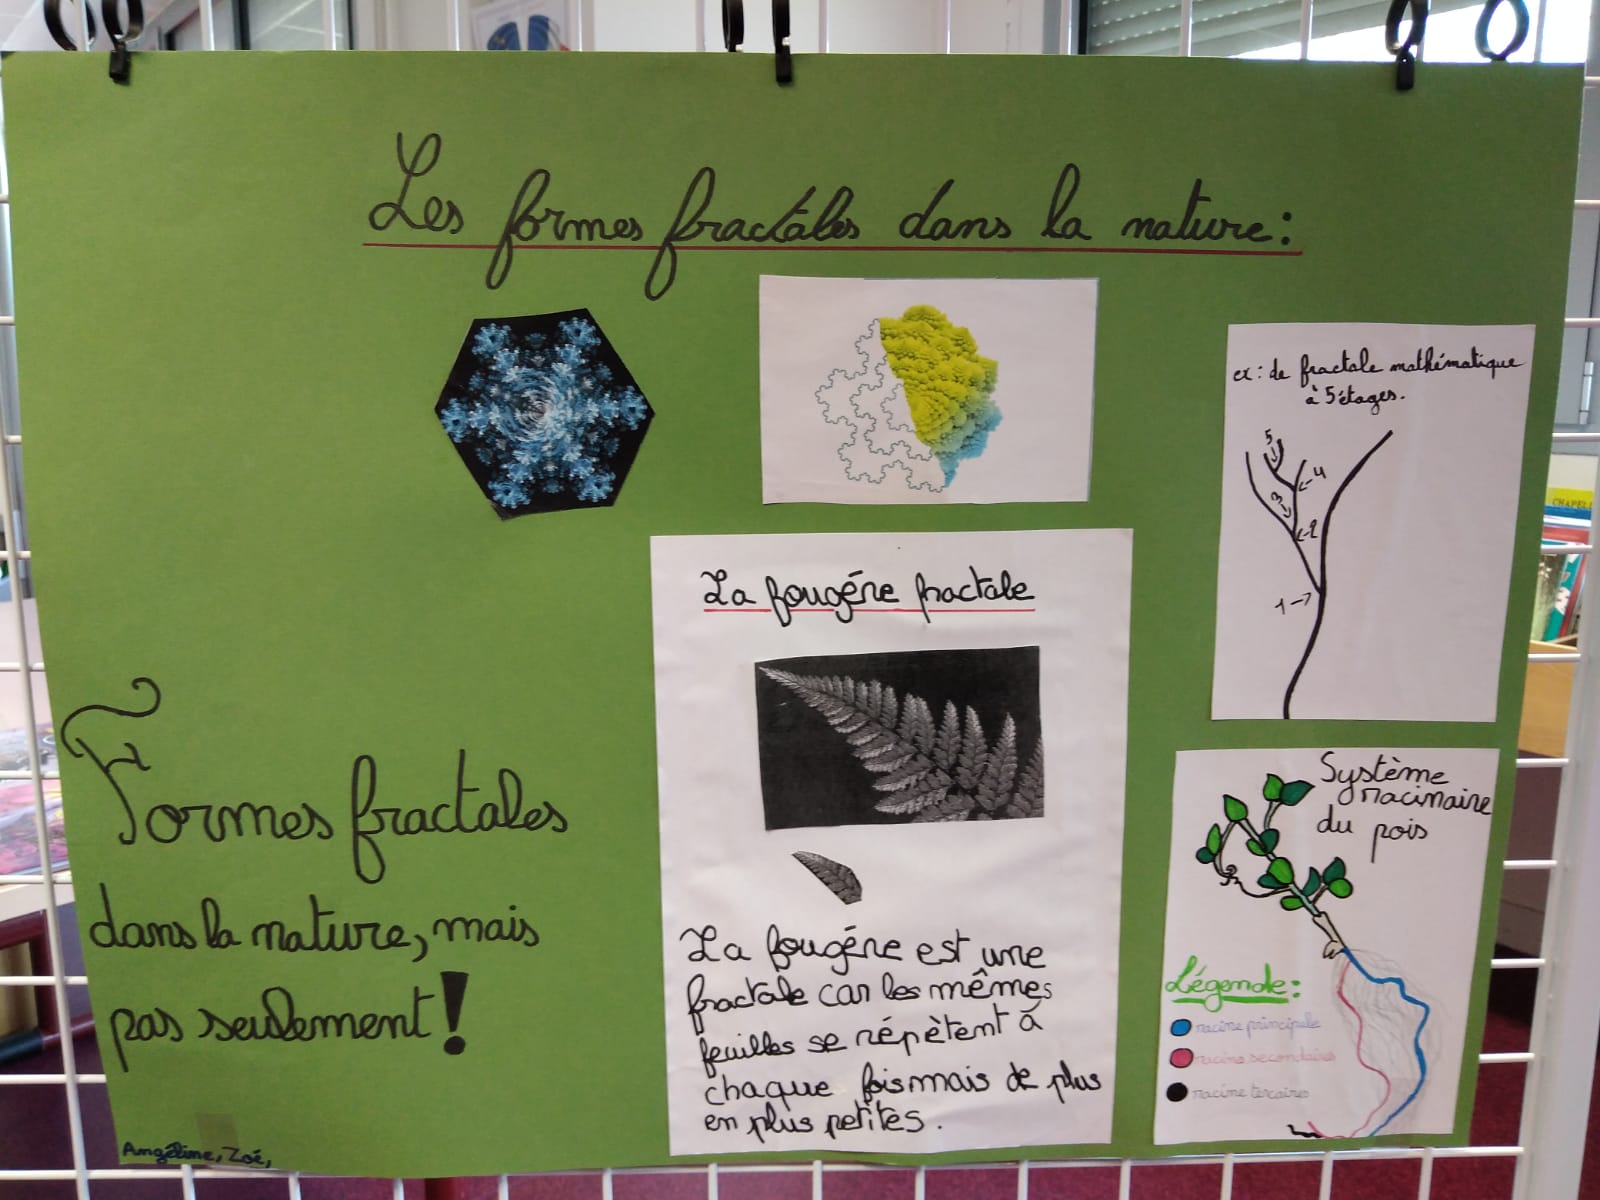 Les formes fractales dans la nature:
ex: de fractale mathématique
à 5 étages.
5
4
3
2
1
La fougére fractale
La fougére est une
fractale car les mêmes
feuilles se répètent à
chaque fois mais de plus
en plus petites.
Formes fractales
dans la nature, mais
pas seulement!
Système
racinaire
du pois
Légende:
racine principale
racine secondaires
racine tercaires
Angéline, Zoé,
CHAPELL